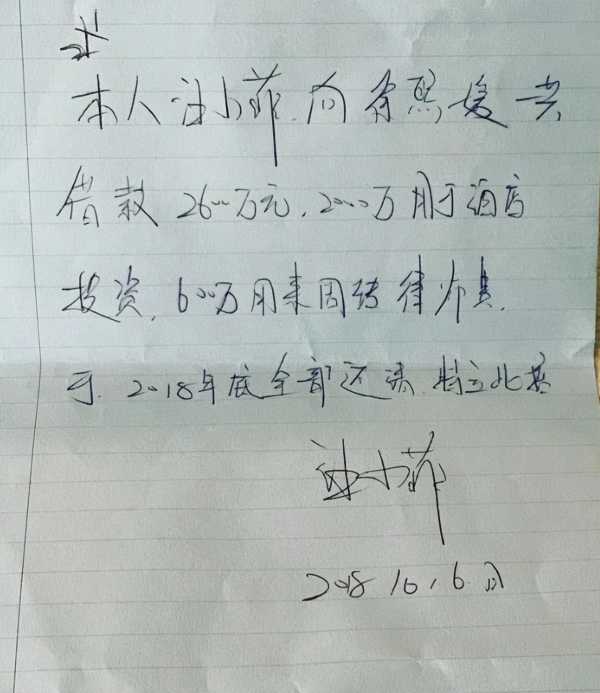 本人汪小菲向徐熙媛共
借款2600万元,2000万用于酒店
投资,600万用来周转律师费.
于.2018年底全部还清.特立此
汪小菲
2018 10,6日